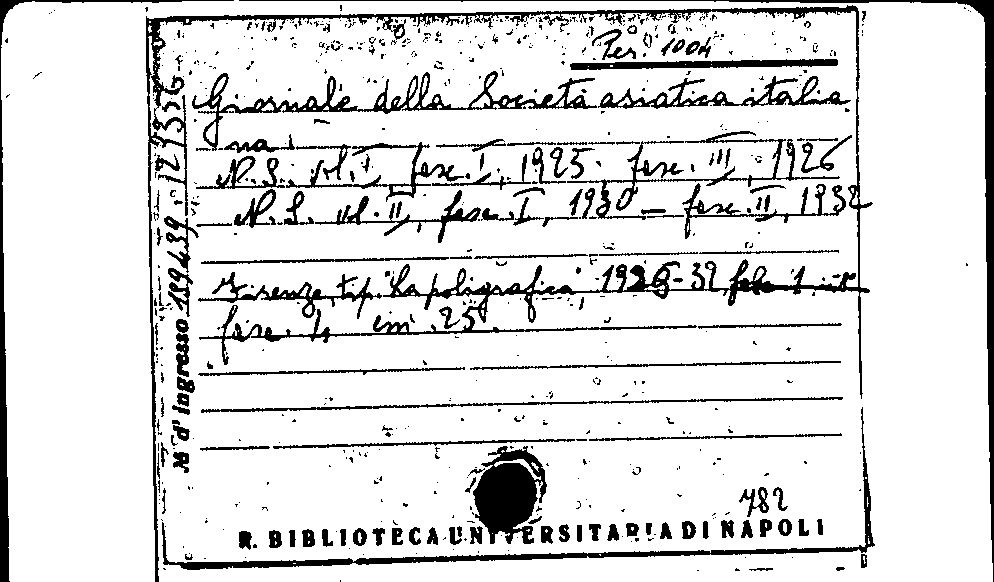 Per. 1004
Giornale della Società asiatica italia
na.
N.S. vol. I, fasc. I, 1925. fasc. III, 1926
N.S. vol. II, fasc. I, 1930 – fasc. II, 1932
Firenze, tip. "La poligrafica", 1925-32
fasc. 4, cm. 25.
N° d'Ingresso 189439. 129336
782
R. BIBLIOTECA UNIVERSITARIA DI NAPOLI